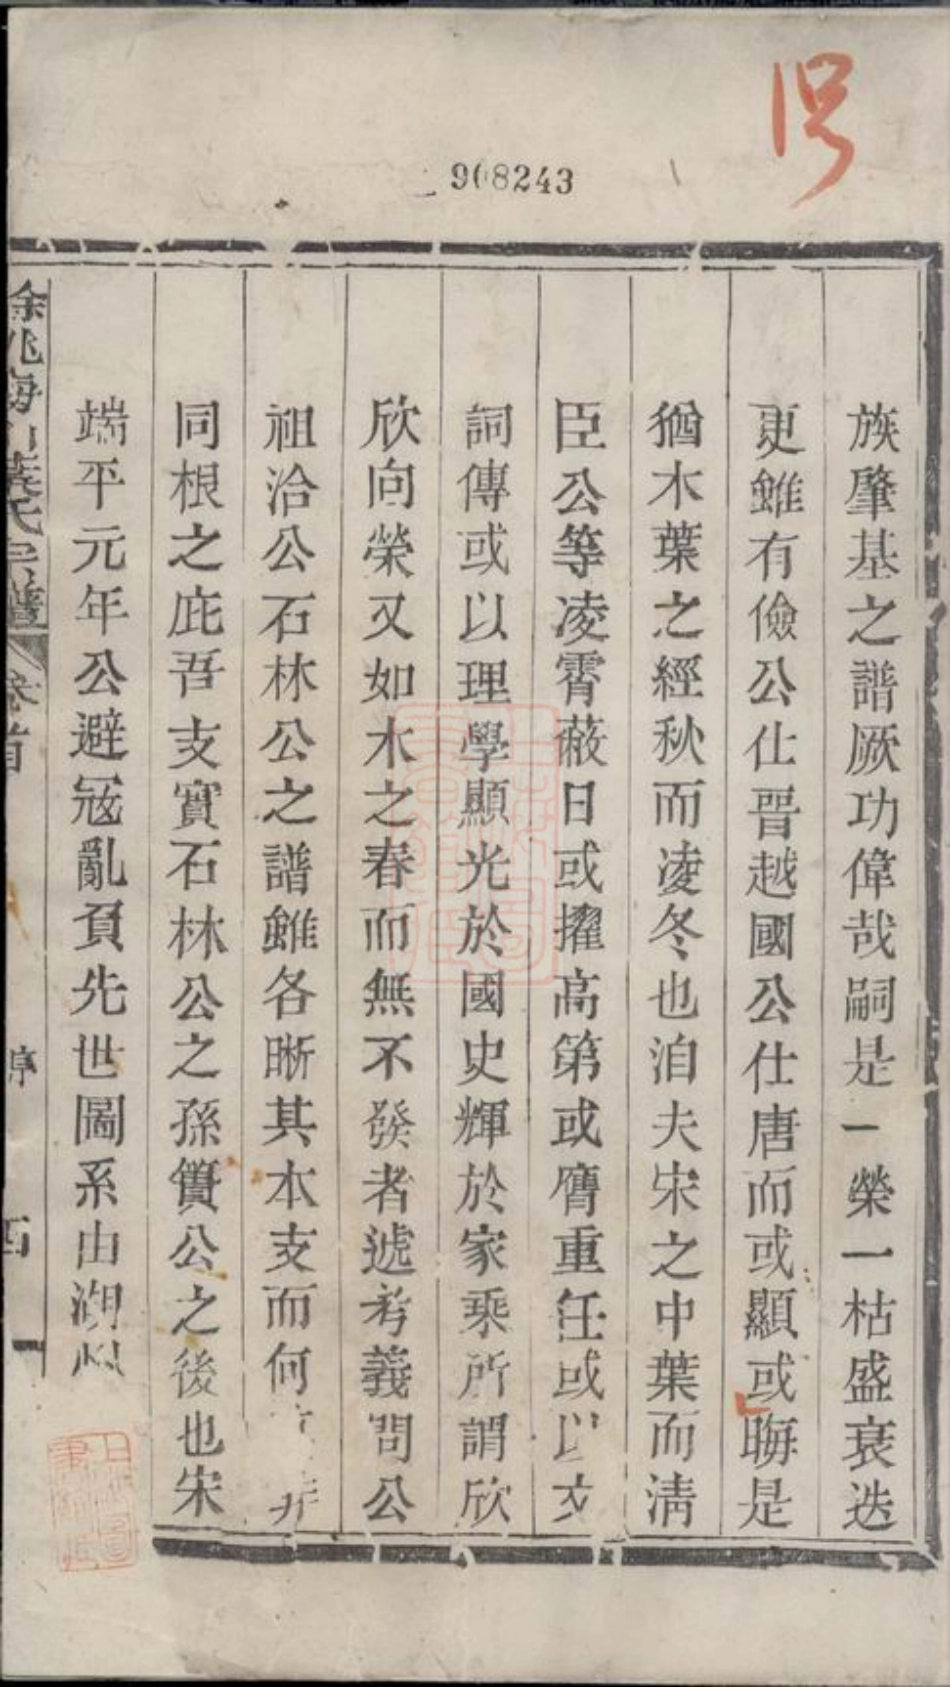 908243
族肇基之譜厥功偉哉嗣是一榮一枯盛衰迭
更雖有儉公仕晋越國公仕唐而或顯或晦是
猶木葉之經秋而凌冬也洎夫宋之中葉而清
臣公等凌霄蔽日或擢高第或膺重任或以文
詞傳或以理學顯光於國史輝於家乘所謂欣
欣向榮又如木之春而無不發者遞考義問公
祖洽公石林公之譜雖各晰其本支而何非
同根之庇吾支實石林公之孫簣公之後也宋
端平元年公避寇亂負先世圖系由湖
餘姚海葉氏宗譜 卷首 序 西